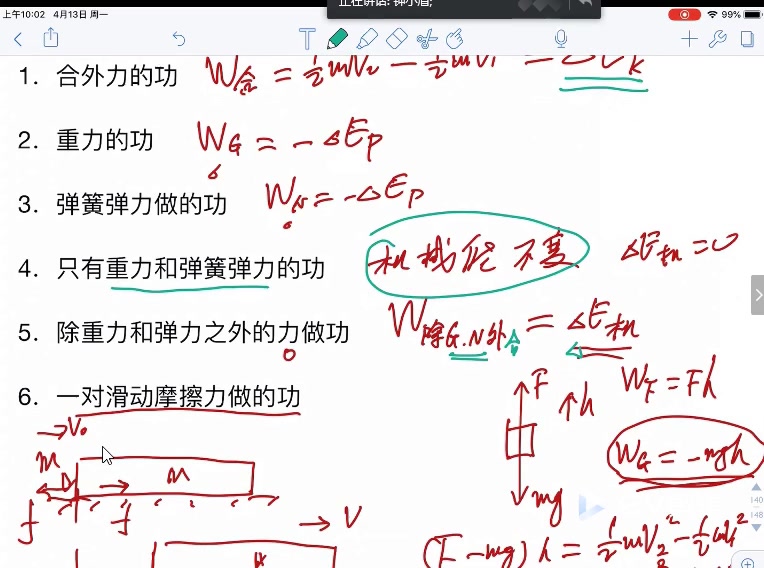 上午10:02 4月13日 周一
99%
1. 合外力的功 W合 = ½mV₂ − ½mV₁ = ΔEk
2. 重力的功 WG = −ΔEp
3. 弹簧弹力做的功 WN = −ΔEp
4. 只有重力和弹簧弹力的功 机械能不变 ΔE机 = 0
5. 除重力和弹力之外的力做功 W除G.N外 = ΔE机
6. 一对滑动摩擦力做的功
F ↑h WF = Fh
→V₀
m
M
WG = −mgh
mg
f f
140
148
→V
(F−mg)h = ½mV₂² − ½mV₁²